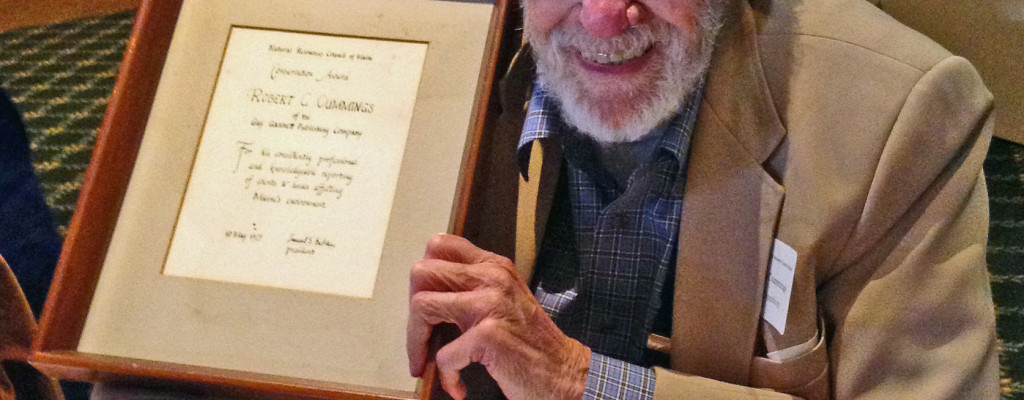 Natural Resources Council of Maine
Conservation Award
ROBERT C. CUMMINGS
of the
Guy Gannett Publishing Company
For his consistently professional
and knowledgeable reporting
of events & issues affecting
Maine's environment.
president